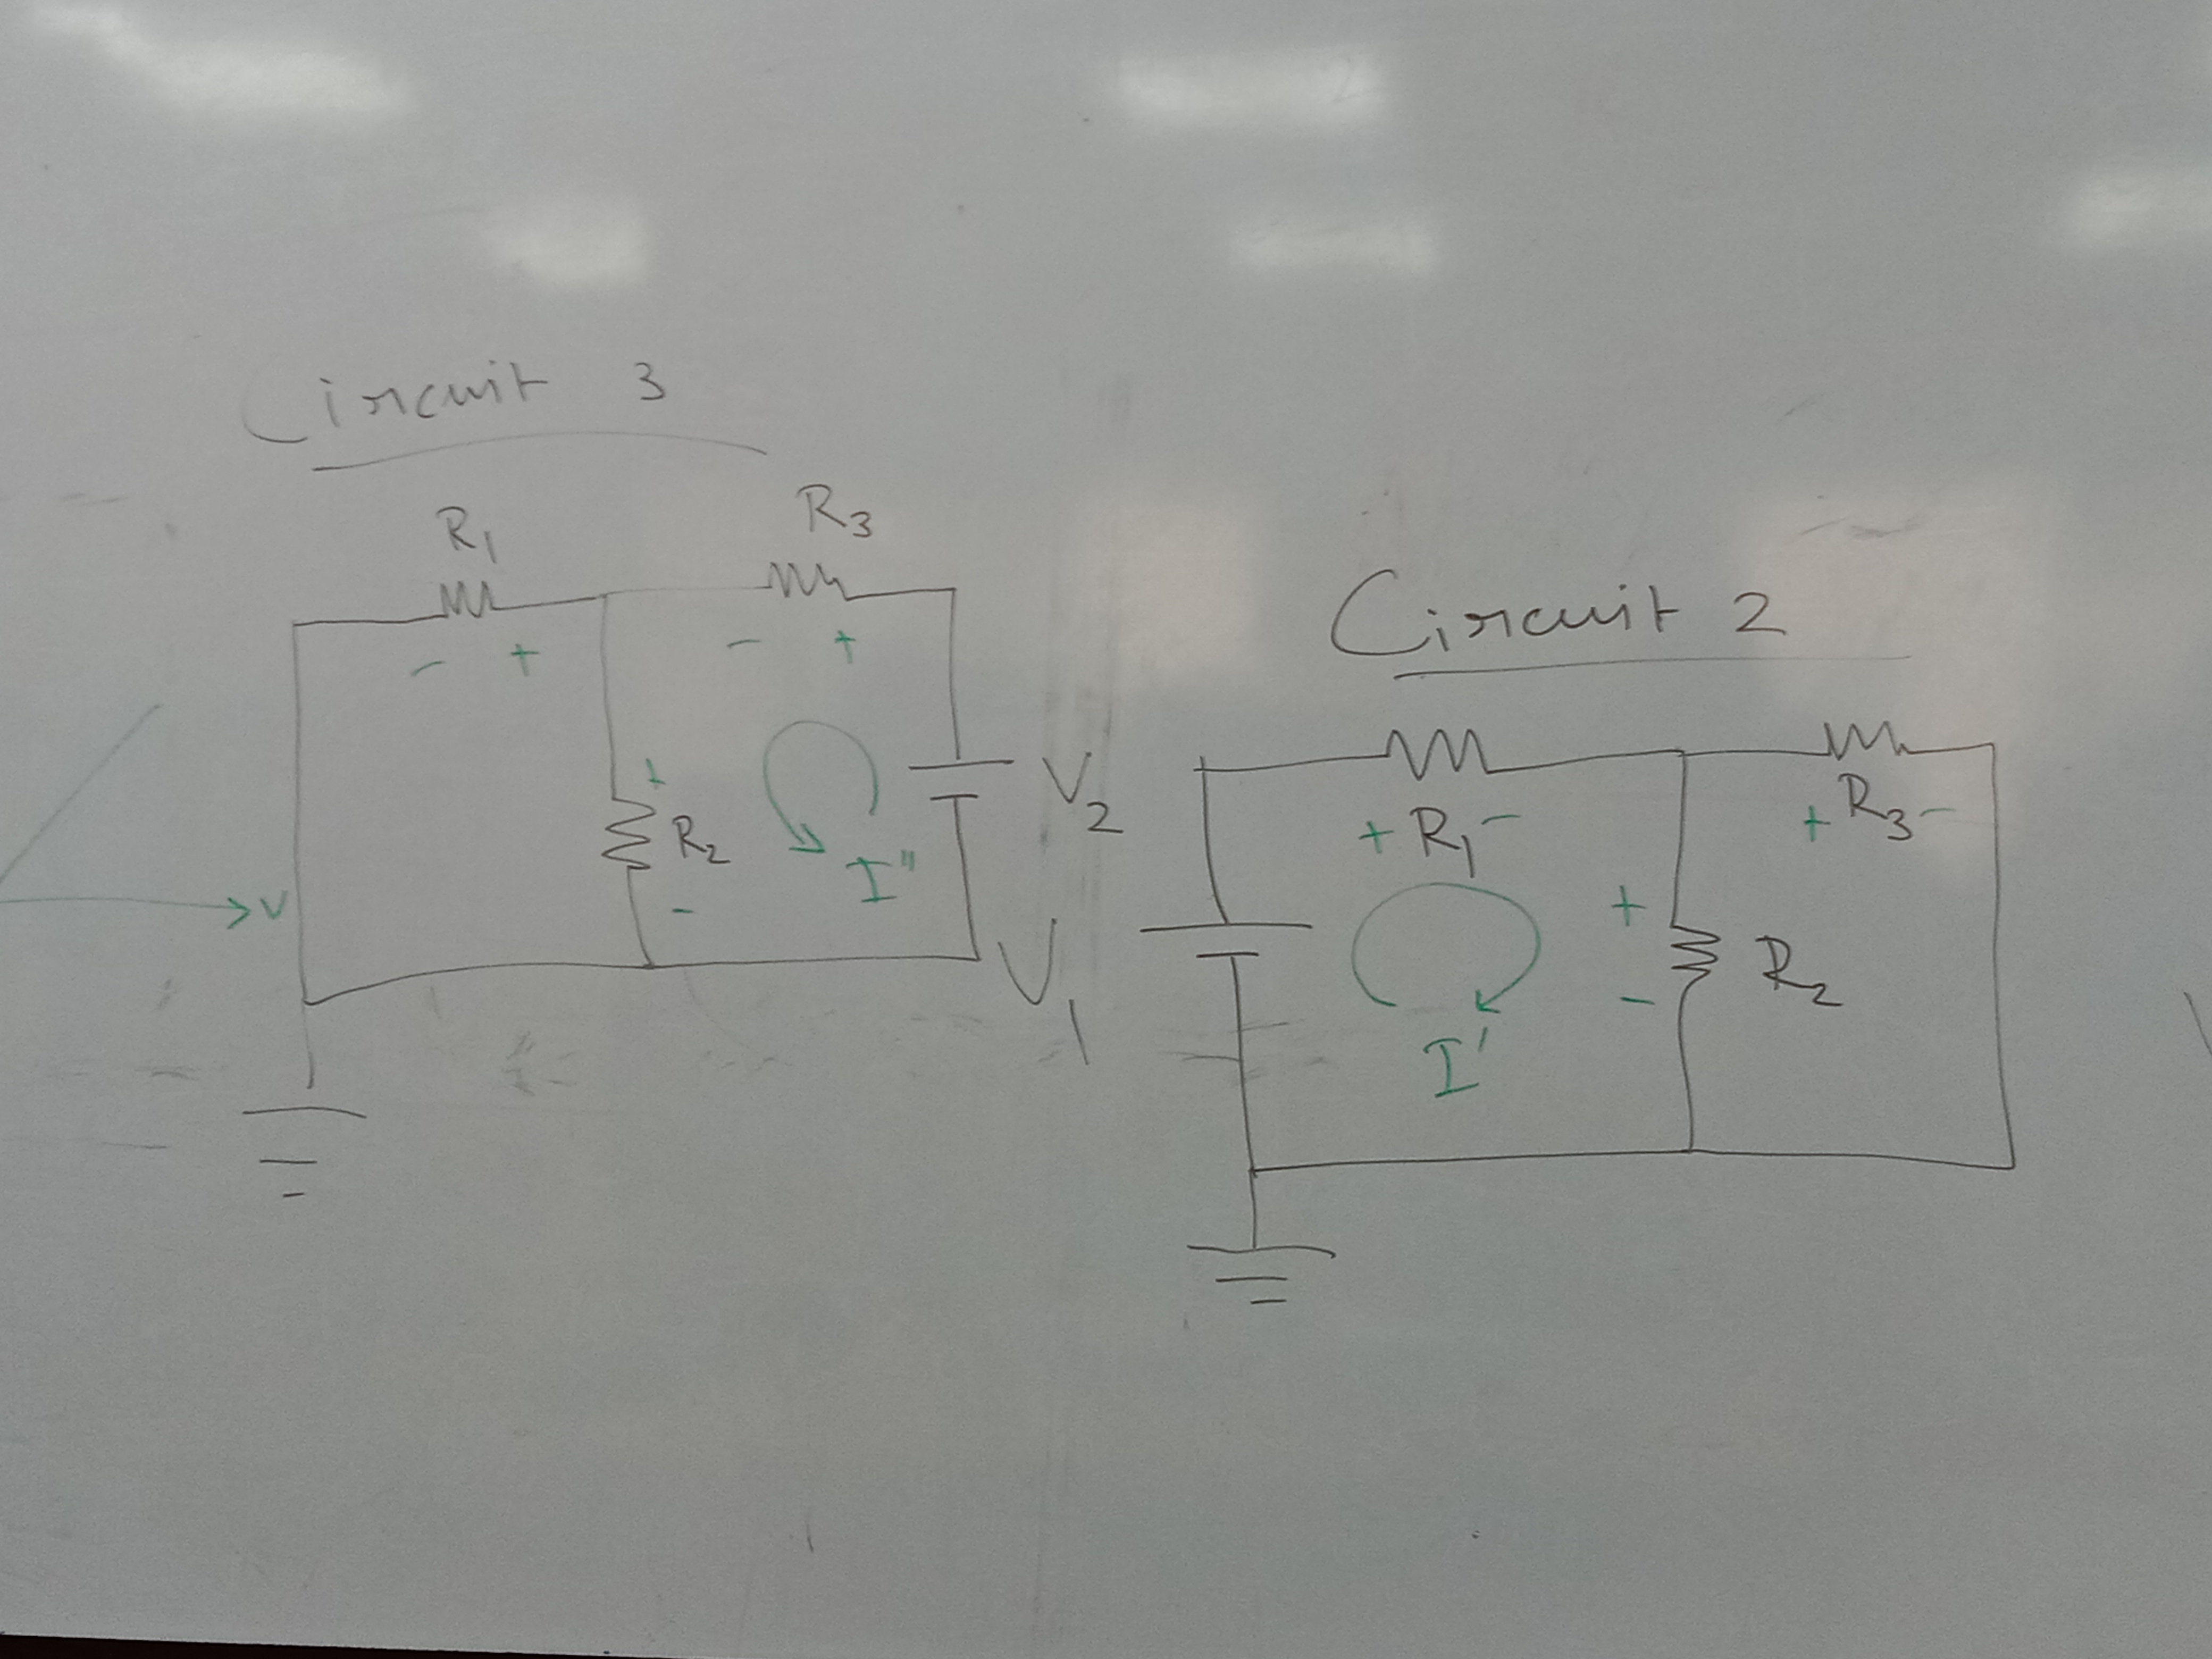 Circuit 3
R1
R3
- +
- +
+
R2
-
I"
V2
V
Circuit 2
V1
+ R1 -
+ R3 -
+
R2
-
I'